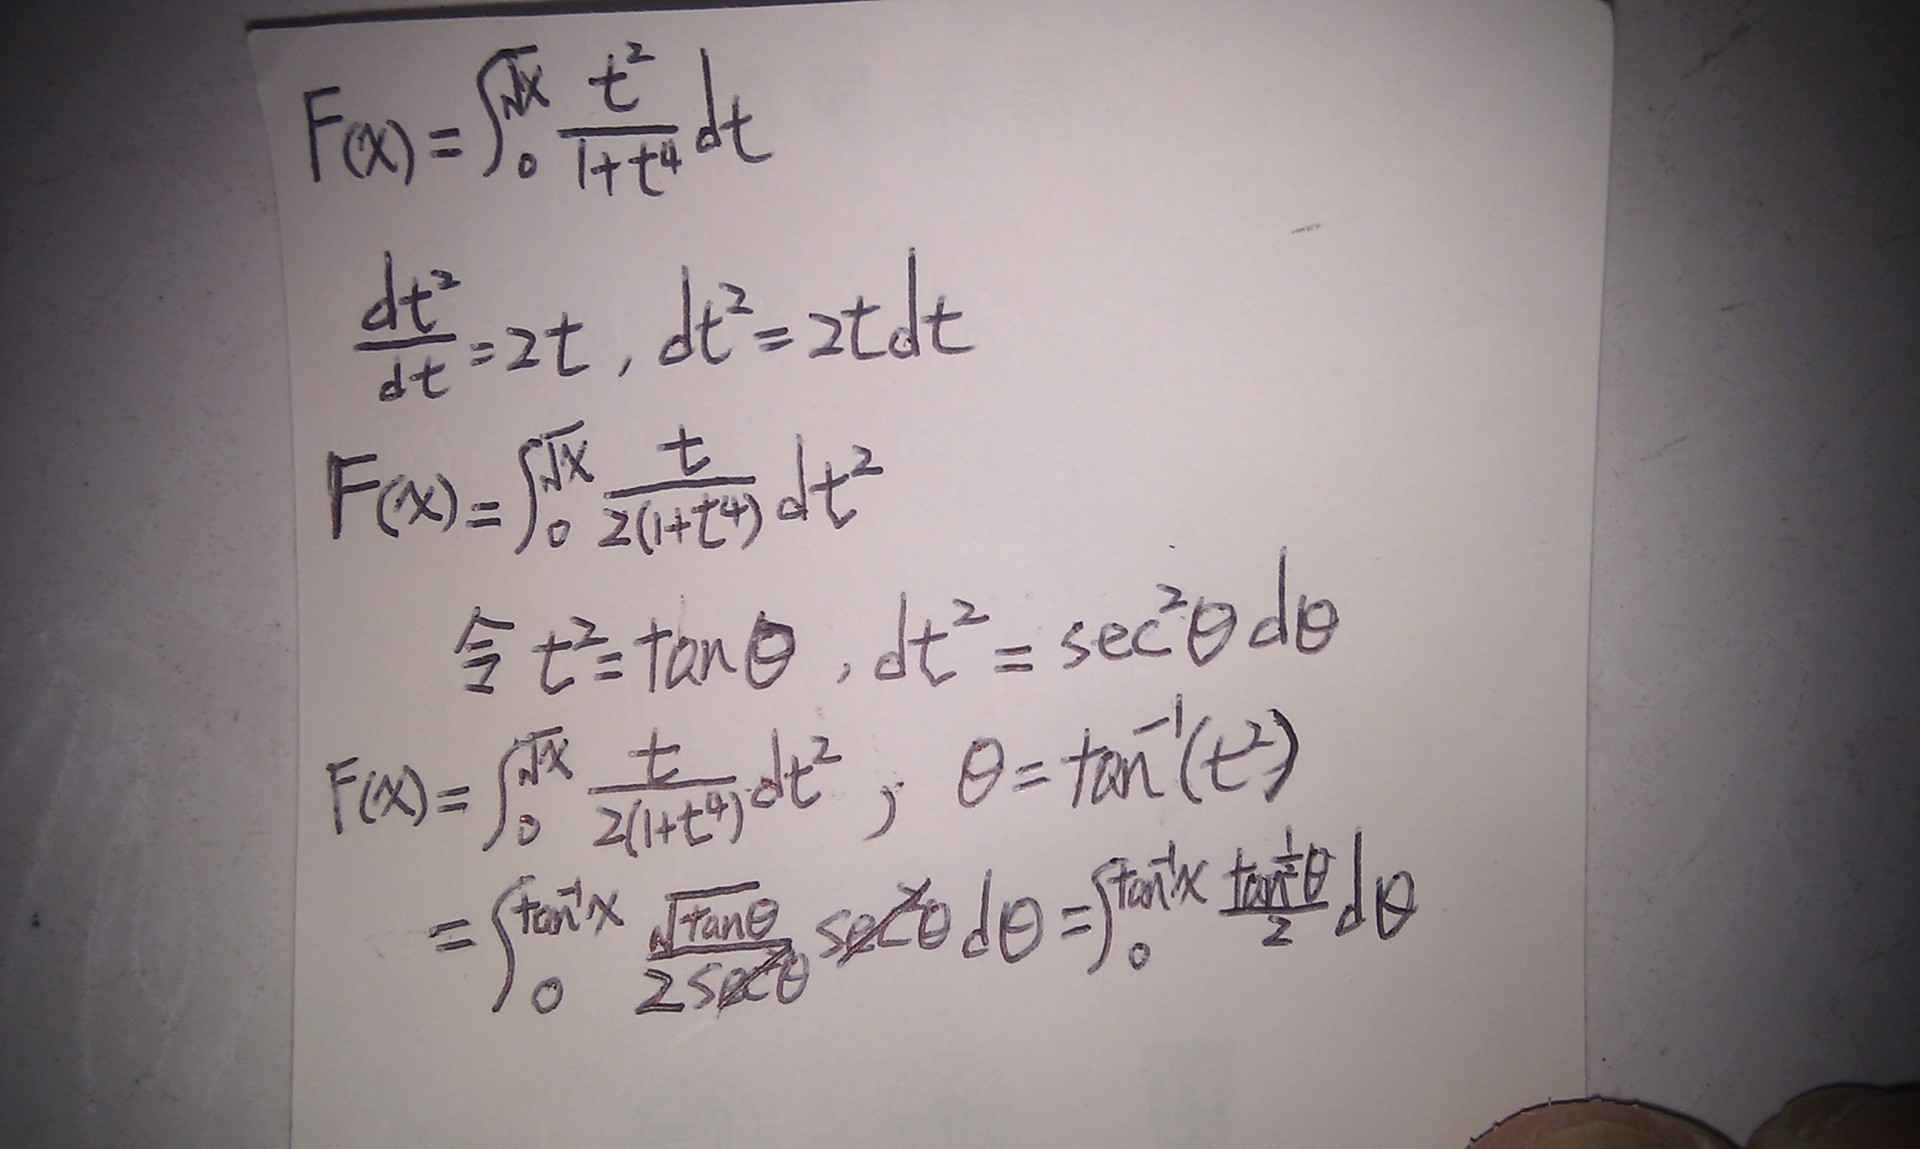 F(x) = ∫₀^√x t²/(1+t⁴) dt
dt²/dt = 2t , dt² = 2tdt
F(x) = ∫₀^√x t/(2(1+t⁴)) dt²
令 t² = tanθ , dt² = sec²θ dθ
F(x) = ∫₀^√x t/(2(1+t⁴)) dt² ; θ = tan⁻¹(t²)
= ∫₀^(tan⁻¹x) √tanθ/(2sec²θ) sec²θ dθ = ∫₀^(tan⁻¹x) tan^(1/2)θ/2 dθ